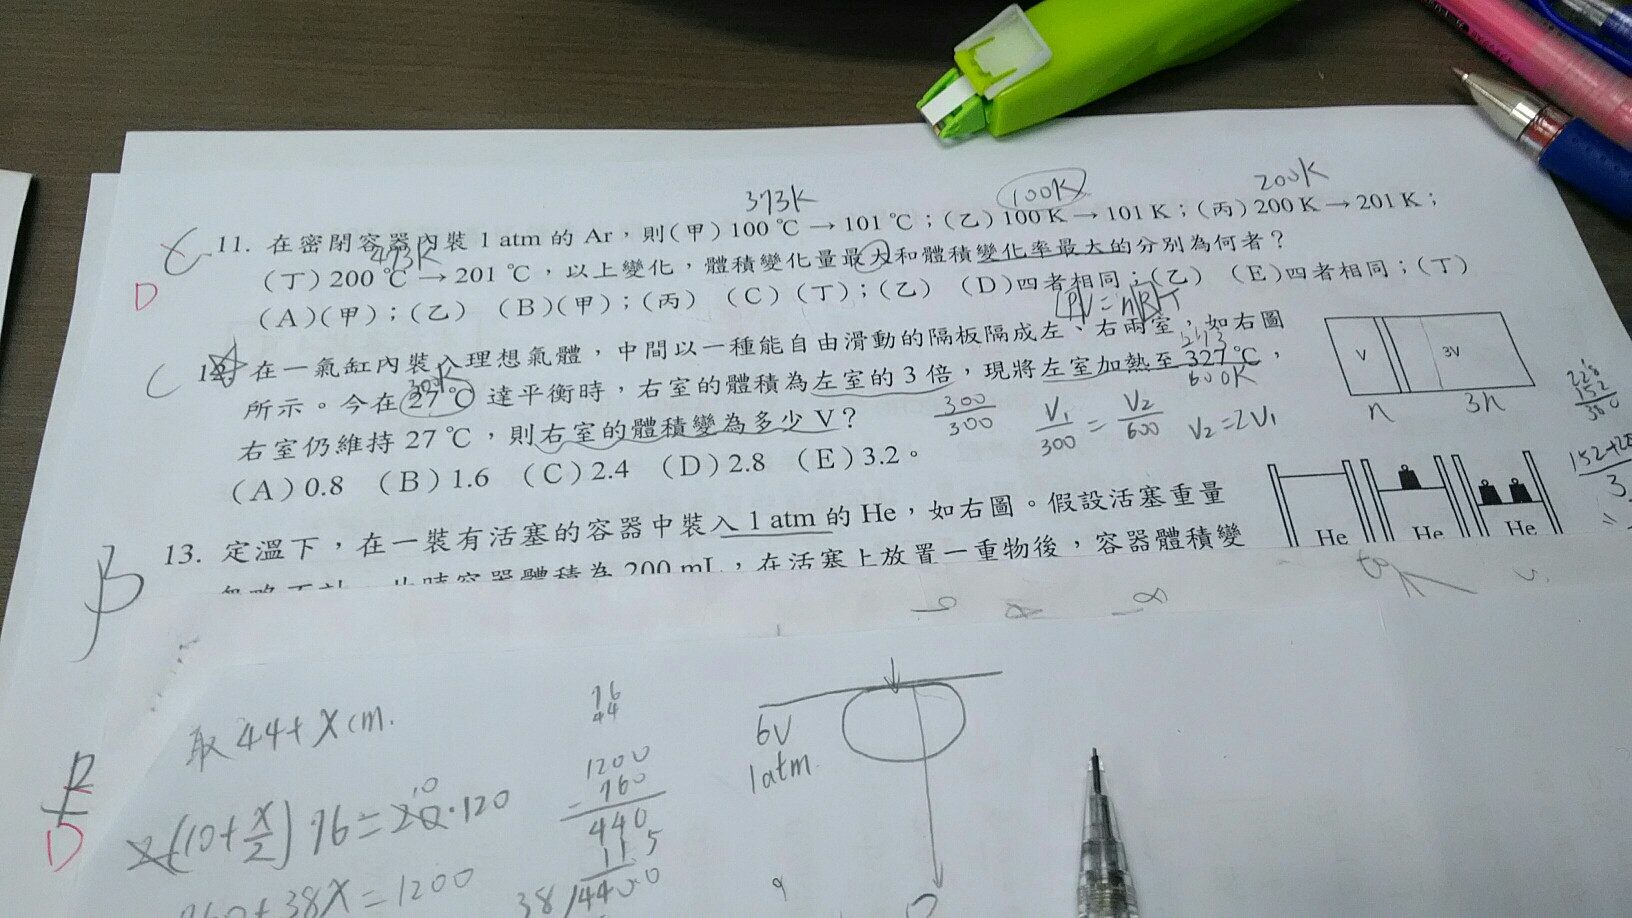 373K 100K 200K
C 11. 在密閉容器內裝 1 atm 的 Ar，則(甲) 100 ℃ → 101 ℃；(乙) 100 K → 101 K；(丙) 200 K → 201 K；
473K
D (丁) 200 ℃ → 201 ℃，以上變化，體積變化量最大和體積變化率最大的分別為何者？
(A)(甲)；(乙) (B)(甲)；(丙) (C)(丁)；(乙) (D)四者相同；(乙) (E)四者相同；(丁)
PV=nRT
C 12. 在一氣缸內裝入理想氣體，中間以一種能自由滑動的隔板隔成左、右兩室，如右圖
300K 273
所示。今在 27 ℃ 達平衡時，右室的體積為左室的 3 倍，現將左室加熱至 327 ℃，
600K
右室仍維持 27 ℃，則右室的體積變為多少 V？
300/300 V1/300 = V2/600 V2=2V1
(A) 0.8 (B) 1.6 (C) 2.4 (D) 2.8 (E) 3.2。
V 3V
n 3n
228
152
380
B 13. 定溫下，在一裝有活塞的容器中裝入 1 atm 的 He，如右圖。假設活塞重量
忽略不計，此時容器體積為 200 mL，在活塞上放置一重物後，容器體積變
He He He
取 44+Xcm.
76
44
(10+X/2) 76=20·120
10
D
1200
-760
440
11.5
38/440.0
760+38X=1200
6V
1atm.